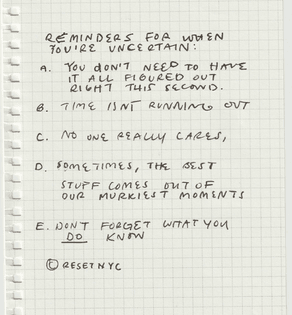 REMINDERS FOR WHEN
YOU'RE UNCERTAIN:
A. YOU DON'T NEED TO HAVE
IT ALL FIGURED OUT
RIGHT THIS SECOND.
B. TIME ISNT RUNNING OUT
C. NO ONE REALLY CARES,
D. SOMETIMES, THE BEST
STUFF COMES OUT OF
OUR MURKIEST MOMENTS
E. DON'T FORGET WHAT YOU
DO KNOW
© RESETNYC